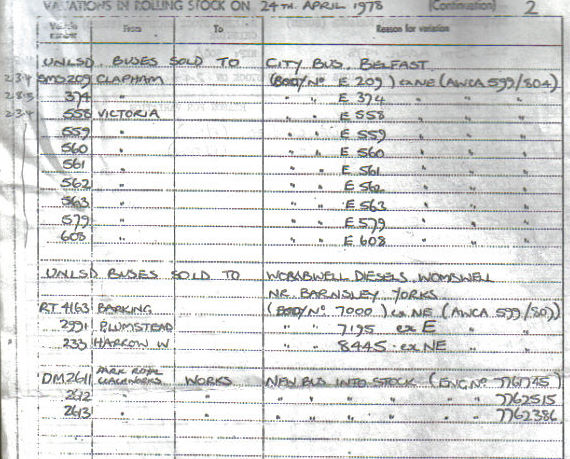 VARIATIONS IN ROLLING STOCK ON 24TH. APRIL 1978 (Continuation) 2
Vehicle number From To Reason for variation
UNLSD BUSES SOLD TO CITY BUS, BELFAST
234 SMS209 CLAPHAM (BODY/No E 209) ex NE (AWCA 599/804)
285 374 " " " E 374 " " "
234 558 VICTORIA " " E 558 " " "
559 " " " E 559 " " "
560 " " " E 560 " " "
561 " " " E 561 " " "
562 " " " E 562 " " "
563 " " " E 563 " " "
579 " " " E 579 " " "
608 " " " E 608 " " "
UNLSD BUSES SOLD TO WOMBWELL DIESELS, WOMBWELL
NR. BARNSLEY YORKS
RT 4163 BARKING (BODY/No 7000) ex NE (AWCA 599/807)
2991 PLUMSTEAD " " 7195 ex E " "
233 HARROW W. " " 8445 ex NE " "
DM2611 PARK ROYAL COACHWORKS WORKS NEW BUS INTO STOCK (ENG No 7761745)
2612 " " " " " " " 7762515
2613 " " " " " " " 7762386